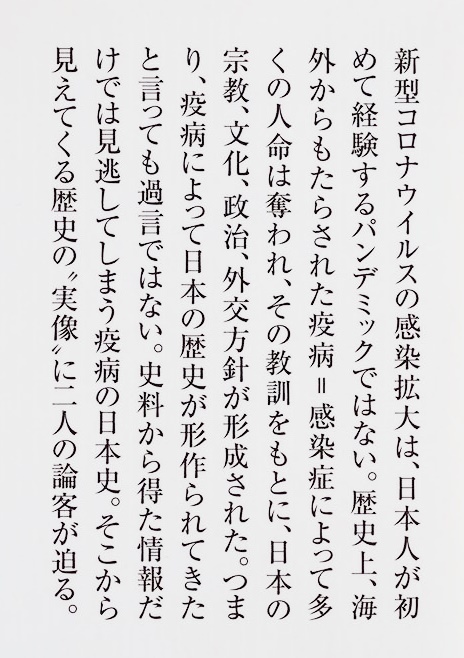 新型コロナウイルスの感染拡大は、日本人が初
めて経験するパンデミックではない。歴史上、海
外からもたらされた疫病＝感染症によって多
くの人命は奪われ、その教訓をもとに、日本の
宗教、文化、政治、外交方針が形成された。つま
り、疫病によって日本の歴史が形作られてきた
と言っても過言ではない。史料から得た情報だ
けでは見逃してしまう疫病の日本史。そこから
見えてくる歴史の〝実像〟に二人の論客が迫る。